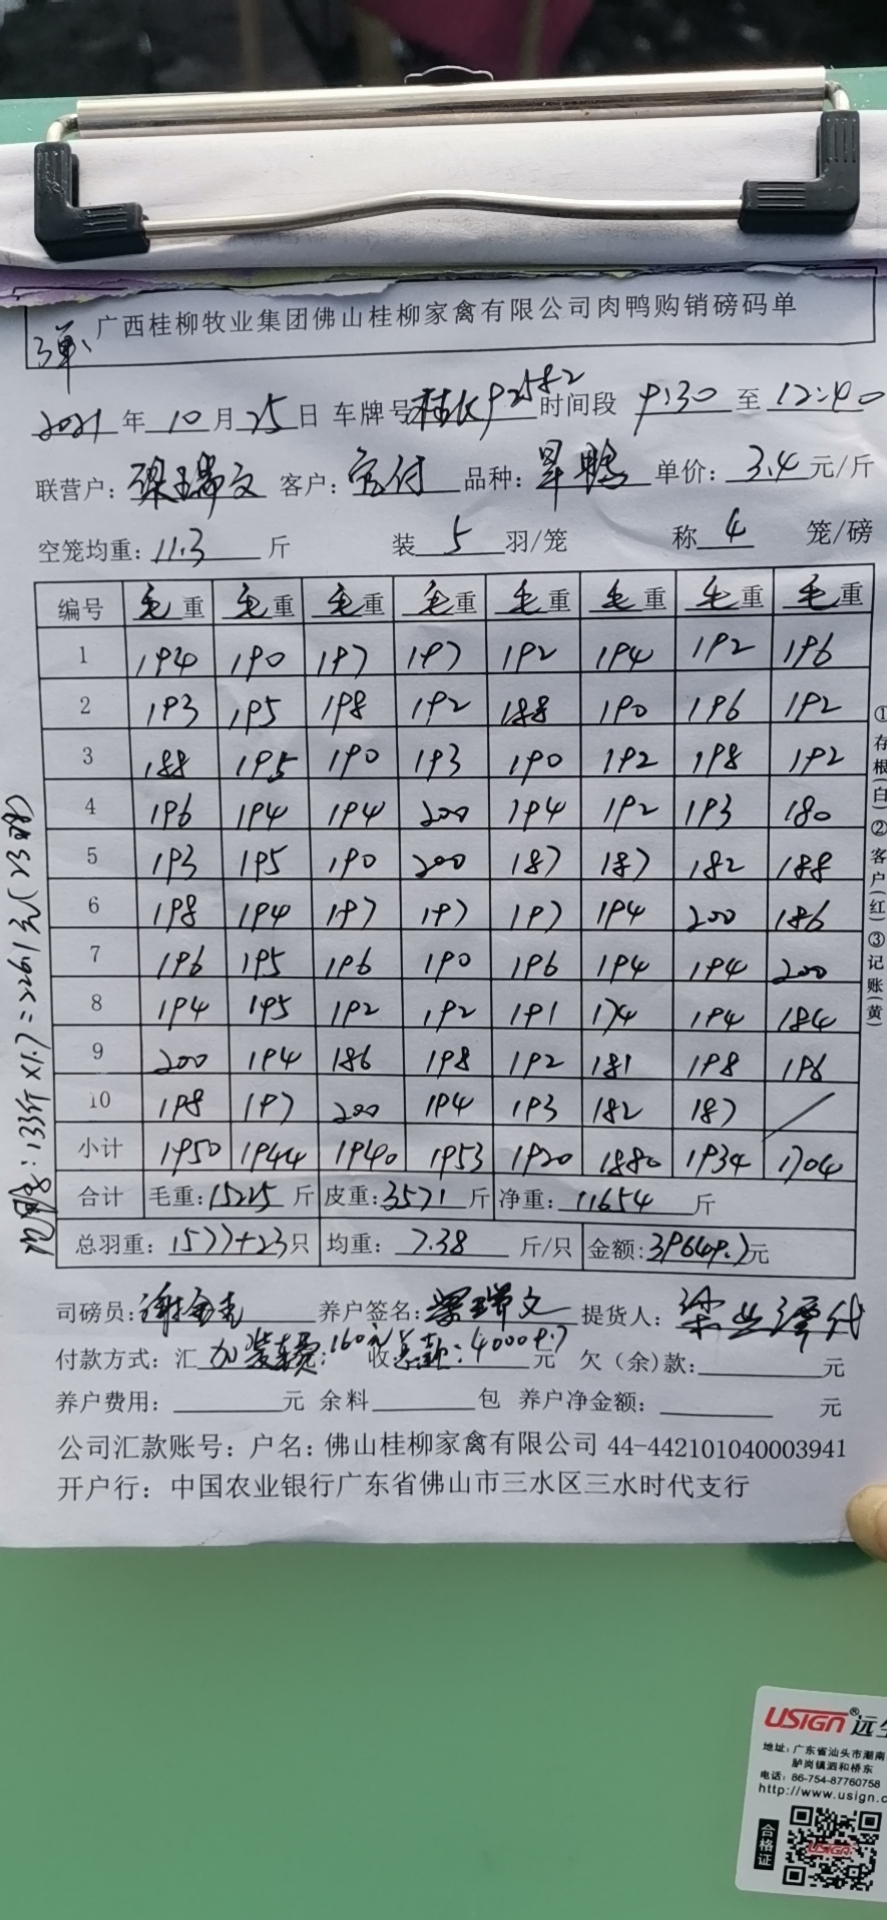 广西桂柳牧业集团佛山桂柳家禽有限公司肉鸭购销磅码单
2021年10月25日 车牌号 桂K92582 时间段 9:30 至 12:40
联营户: 梁瑞文 客户: 品种: 单价: 3.4 元/斤
空笼均重: 11.3 斤 装 5 羽/笼 称 4 笼/磅
编号 毛重 毛重 毛重 毛重 毛重 毛重 毛重 毛重
1 194 190 197 197 192 194 192 196
2 193 195 198 192 188 190 196 192
3 188 195 190 193 190 192 198 192
4 196 194 194 200 194 192 193 180
5 193 195 190 200 187 187 182 188
6 198 194 197 197 197 194 200 186
7 196 195 196 190 196 194 194 200
8 194 195 192 192 191 174 194 184
9 200 194 186 198 192 181 198 196
10 198 197 200 194 193 182 187 /
小计 1950 1944 1940 1953 1920 1880 1934 1704
合计 毛重: 15225 斤 皮重: 3571 斤 净重: 11654 斤
总羽重: 1577+23 只 均重: 7.38 斤/只 金额: 39649.7 元
司磅员: 养户签名: 梁瑞文 提货人:
付款方式: 汇 加装车费: 160元 收 总款: 40009.7 元 欠(余)款: 元
养户费用: 元 余料 包 养户净金额: 元
公司汇款账号: 户名: 佛山桂柳家禽有限公司 44-442101040003941
开户行: 中国农业银行广东省佛山市三水区三水时代支行
①存根(白)②客户(红)③记账(黄)
133斤×1.7=226.1元(23只)
USIGN® 远生
地址: 广东省汕头市潮南
胪岗镇泗和桥东
电话: 86-754-87760758
http://www.usign.c
合格证
USIGN